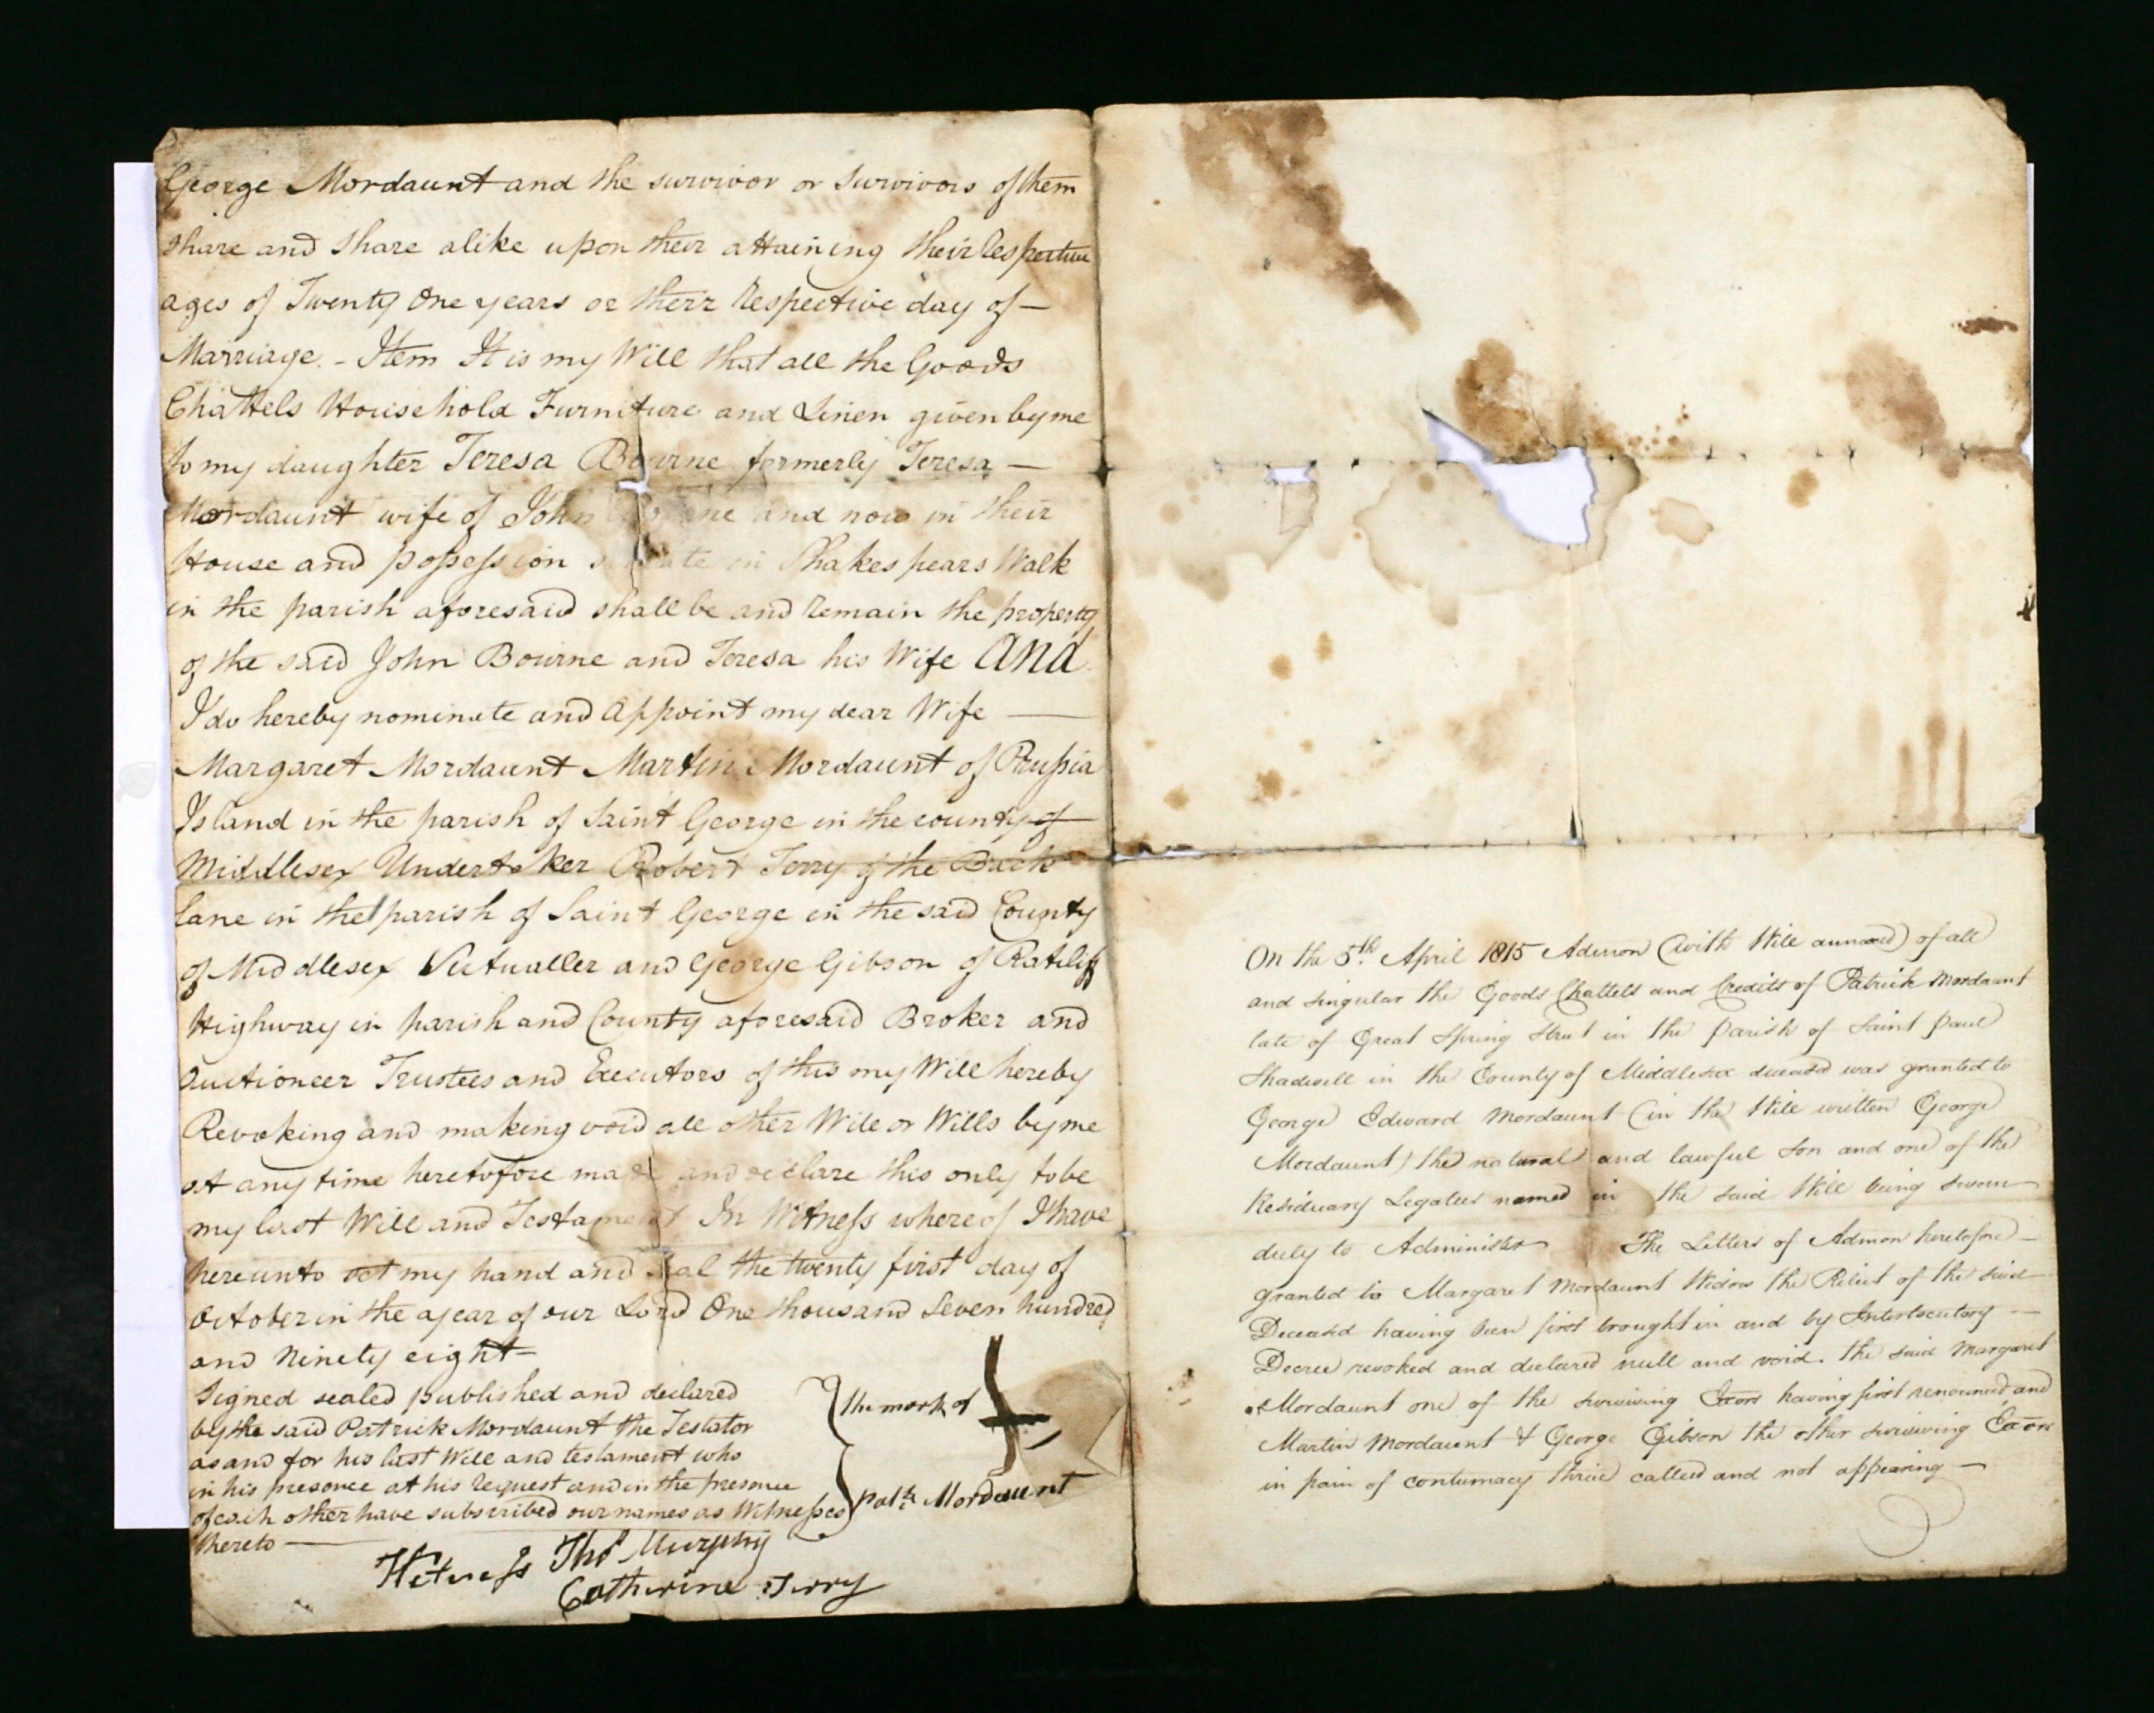 George Mordaunt and the survivor or survivors of them
share and share alike upon their attaining their respective
ages of Twenty One years or their respective day of —
Marriage. - Item It is my Will that all the Goods
Chattels Household Furniture and Linen given by me
to my daughter Teresa Bourne formerly Teresa —
Mordaunt wife of John and now in their
House and possession in Shakespears Walk
in the parish aforesaid shall be and remain the property
of the said John Bourne and Teresa his Wife And
I do hereby nominate and Appoint my dear Wife —
Margaret Mordaunt Martin Mordaunt of Prussia
Island in the parish of Saint George in the county of
Middlesex Undertaker Robert Terry of the Back
lane in the parish of Saint George in the said County
of Middlesex Victualler and George Gibson of Ratcliff
Highway in parish and County aforesaid Broker and
Auctioneer Trustees and Executors of this my Will hereby
Revoking and making void all other Will or Wills by me
at any time heretofore made and declare this only to be
my last Will and Testament In Witness whereof I have
hereunto set my hand and Seal the twenty first day of
October in the year of our Lord One thousand Seven hundred
and Ninety eight —
Signed sealed published and declared
by the said Patrick Mordaunt the Testator
as and for his last Will and testament who
in his presence at his request and in the presence
of each other have subscribed our names as Witnesses
thereto —
the mark of
Patk. Mordaunt
Witness Thos Murphy
Catherine Terry
On the 5th April 1815 Admon (with Will annexed) of all
and singular the Goods Chattels and Credits of Patrick Mordaunt
late of Great Spring Street in the Parish of Saint Paul
Shadwell in the County of Middlesex deceased was granted to
George Edward Mordaunt (in the Will written George
Mordaunt) the natural and lawful Son and one of the
Residuary Legatees named in the said Will being sworn
duly to Administer The Letters of Admon heretofore —
granted to Margaret Mordaunt Widow the Relict of the said
Deceased having been first brought in and by Interlocutory —
Decree revoked and declared null and void. the said Margaret
Mordaunt one of the surviving Exors having first renounced and
Martin Mordaunt & George Gibson the other surviving Exors
in pain of contumacy thrice called and not appearing —